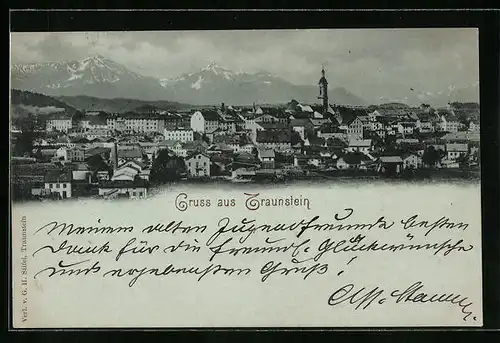 Gruss aus Traunstein
Meinem alten Jugendfreunde besten
Dank für die freundl. Glückwünsche
und ergebensten Gruß!
Verl. v. G. H. Stifel, Traunstein